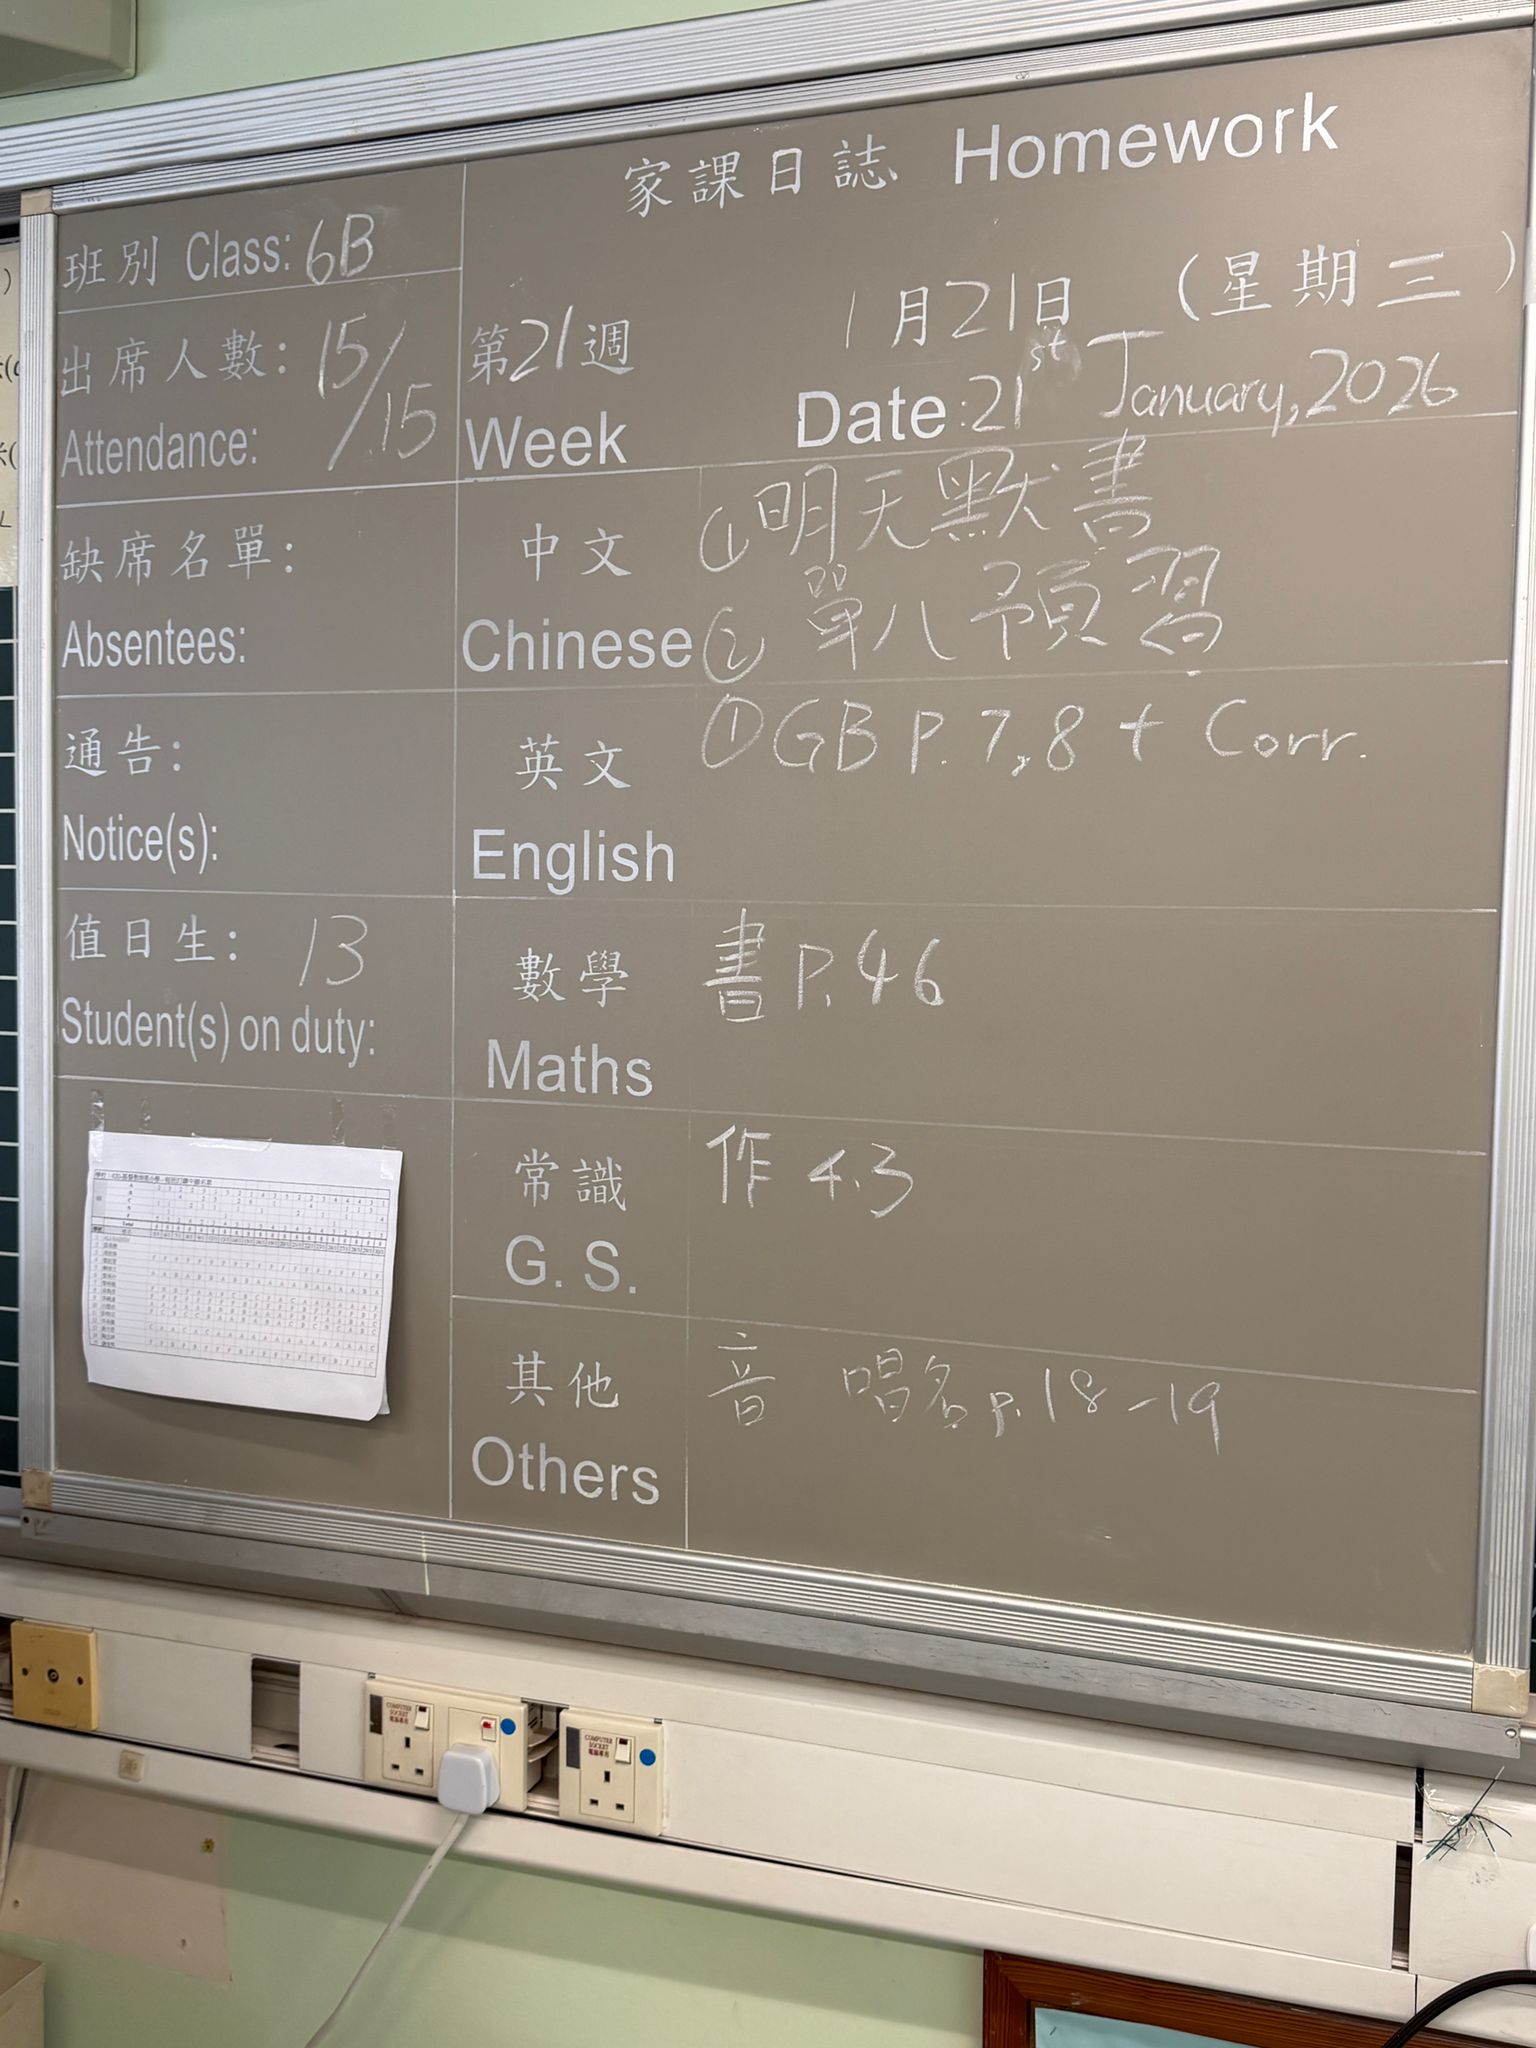 家課日誌 Homework
班別 Class: 6B
出席人數: 15/15
Attendance:
第21週
Week
1月21日 (星期三)
Date: 21st January, 2026
缺席名單:
Absentees:
中文
Chinese
① 明天默書
② 單八預習
通告:
Notice(s):
英文
English
① GB P. 7, 8 + Corr.
值日生: 13
Student(s) on duty:
數學
Maths
書 P. 46
常識
G. S.
作 4.3
其他
Others
音 唱名 p. 18-19
COMPUTER
SOCKET
COMPUTER
SOCKET